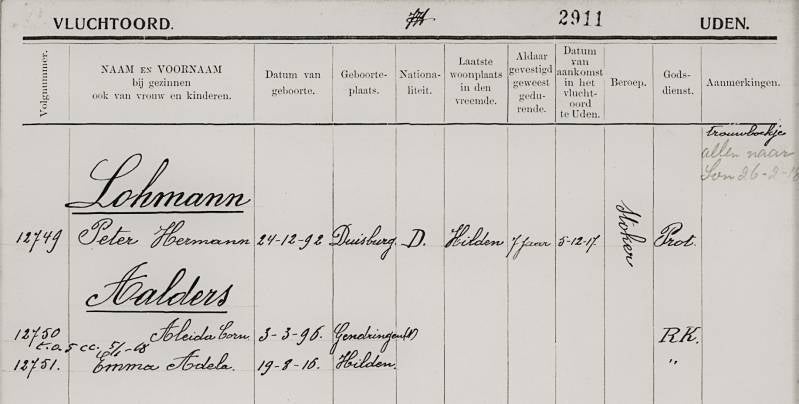 VLUCHTOORD. 2911 UDEN.
Volgnummer. NAAM EN VOORNAAM bij gezinnen ook van vrouw en kinderen. Datum van geboorte. Geboorte-plaats. Nationa-liteit. Laatste woonplaats in den vreemde. Aldaar gevestigd geweest gedu-rende. Datum van aankomst in het vlucht-oord te Uden. Beroep. Gods-dienst. Aanmerkingen.
trouwboekje
allen naar
Son 26-2-18
Lohmann
12749 Peter Hermann 24-12-92 Duisburg D. Hilden 7 jaar 5-12-17 Stoker Prot.
Aalders
12750 Aleida Corn. 3-3-96. Gendringen (N) RK.
12751. Emma Adela. 19-8-16. Hilden. "